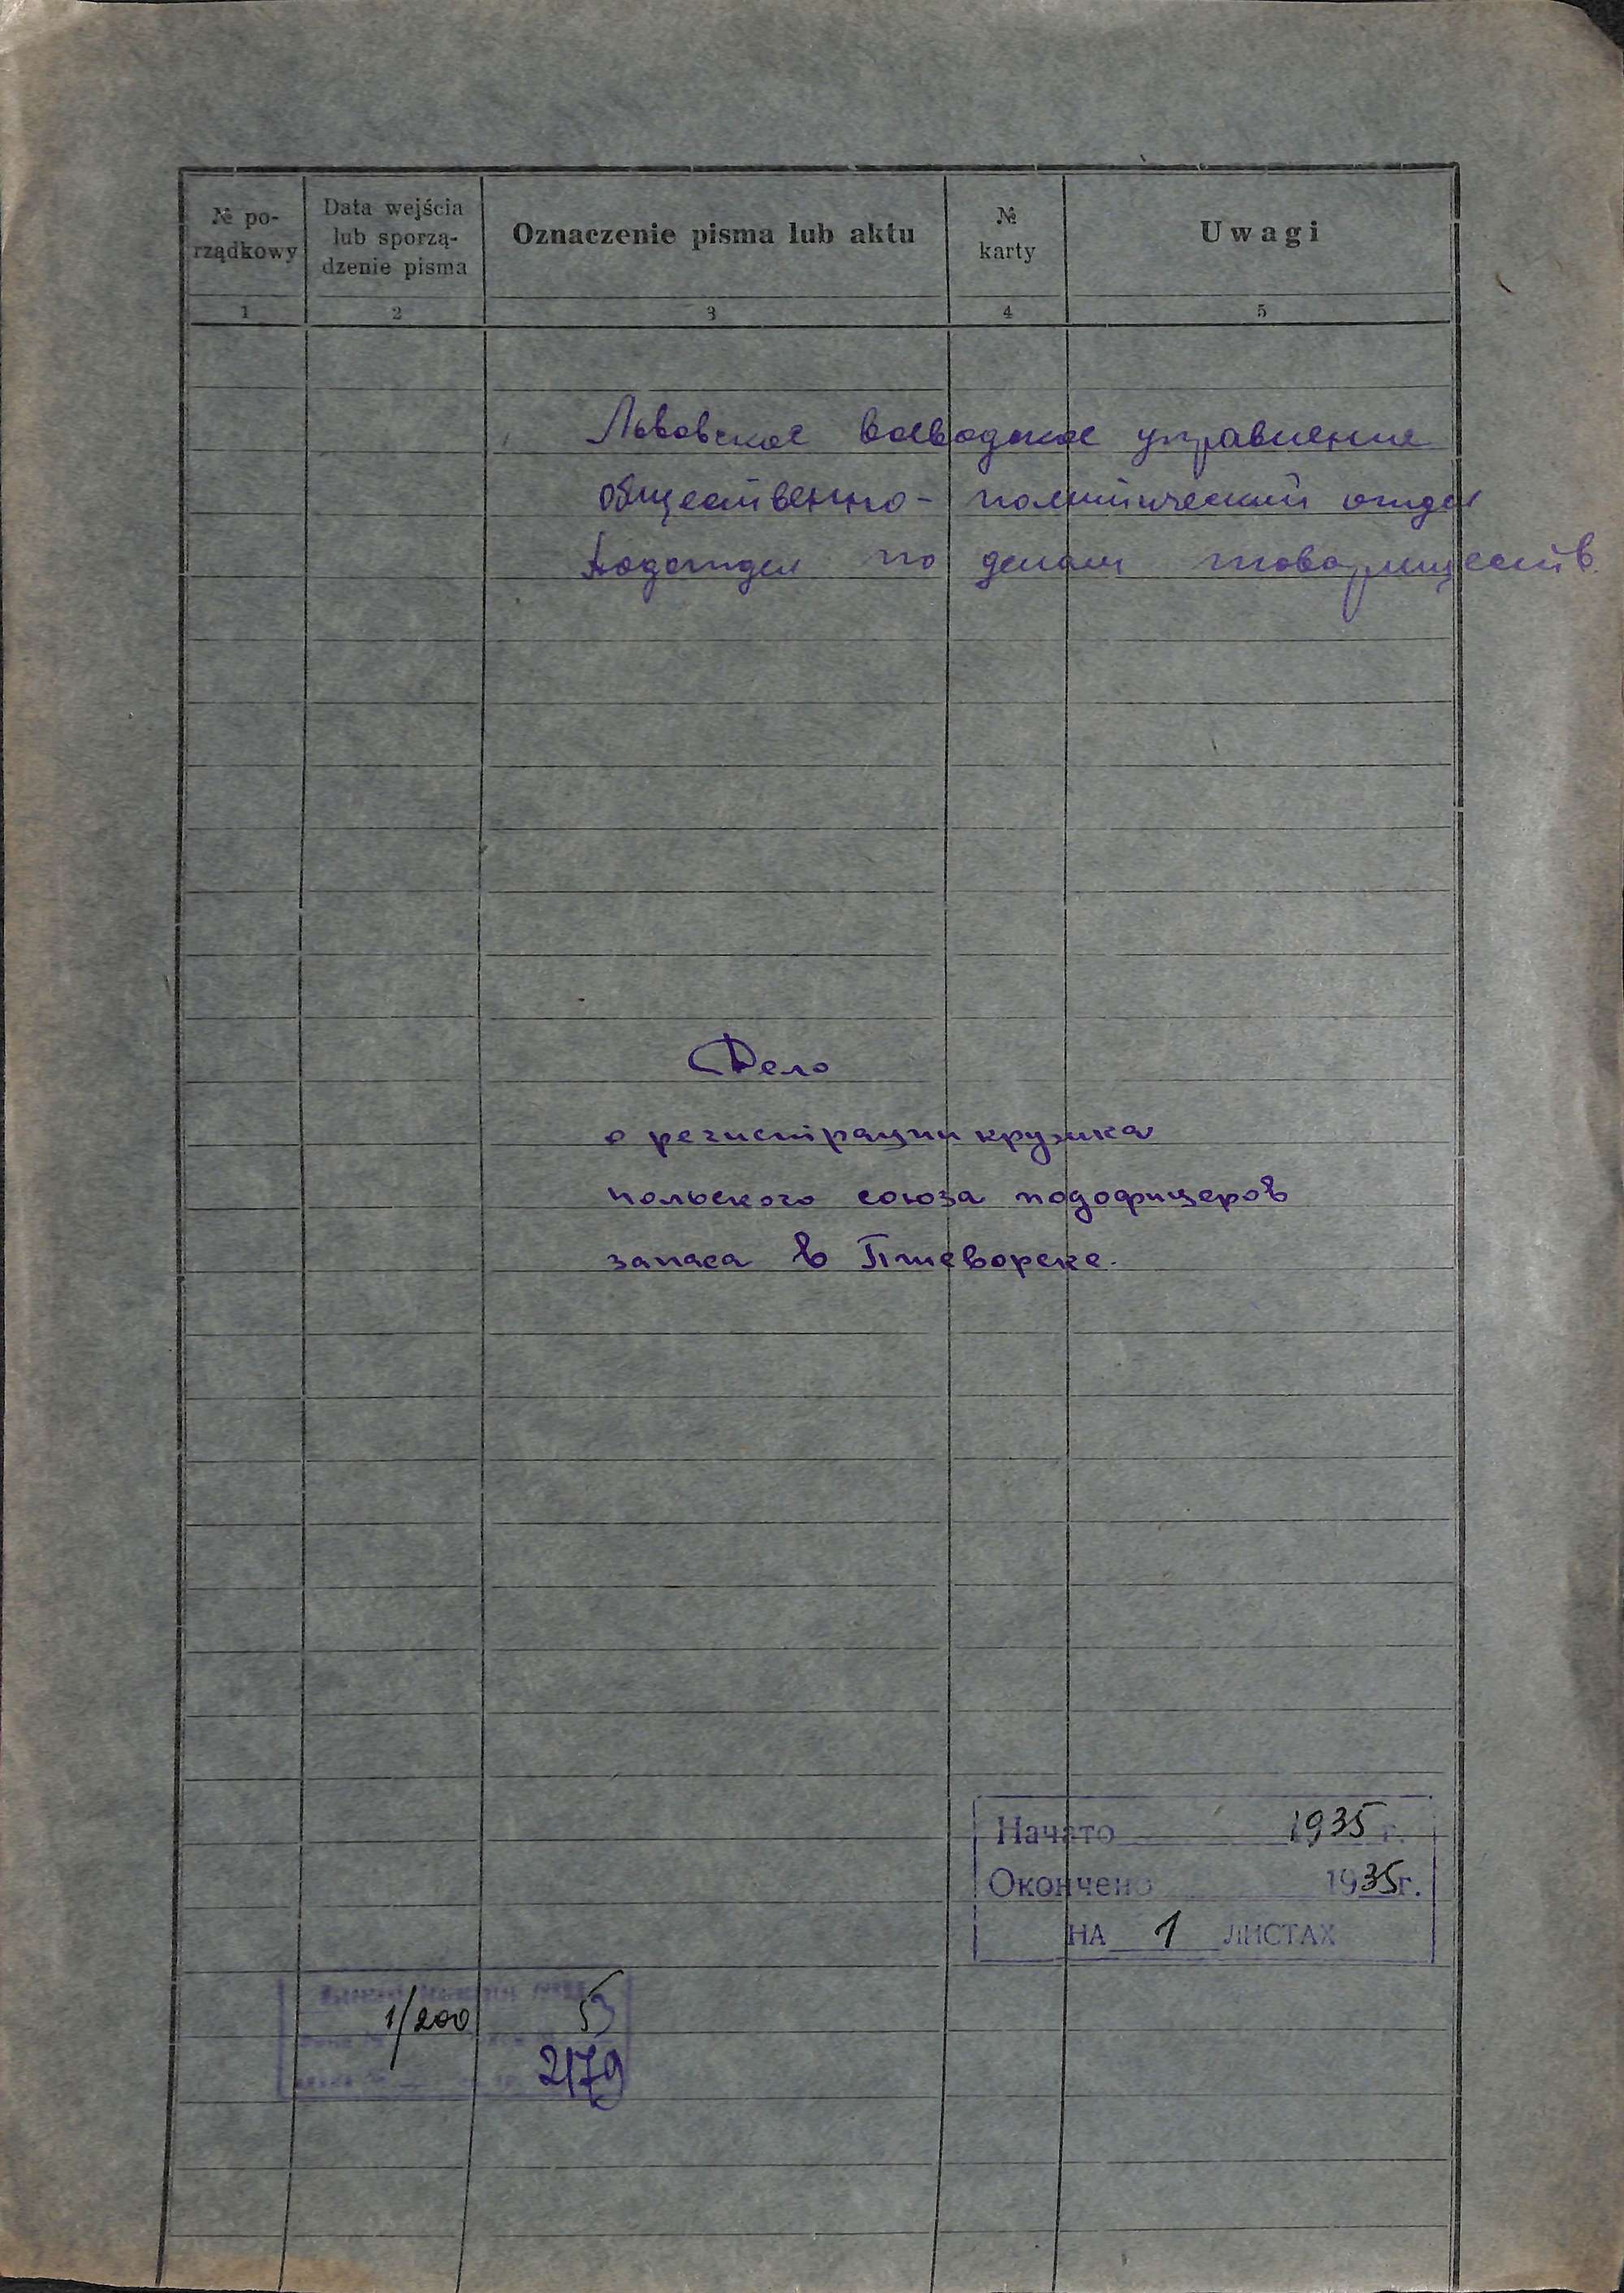 № po-
rządkowy
Data wejścia
lub sporzą-
dzenie pisma
Oznaczenie pisma lub aktu
№
karty
Uwagi
1 2 3 4 5
Львовское воеводское управление
общественно- политический отдел
подотдел по делам товариществ.
Дело
о регистрации кружка
польского союза подофицеров
запаса в Пшеворске.
Начато 1935 г.
Окончено 1935 г.
НА 1 ЛИСТАХ
1/200 53
2179